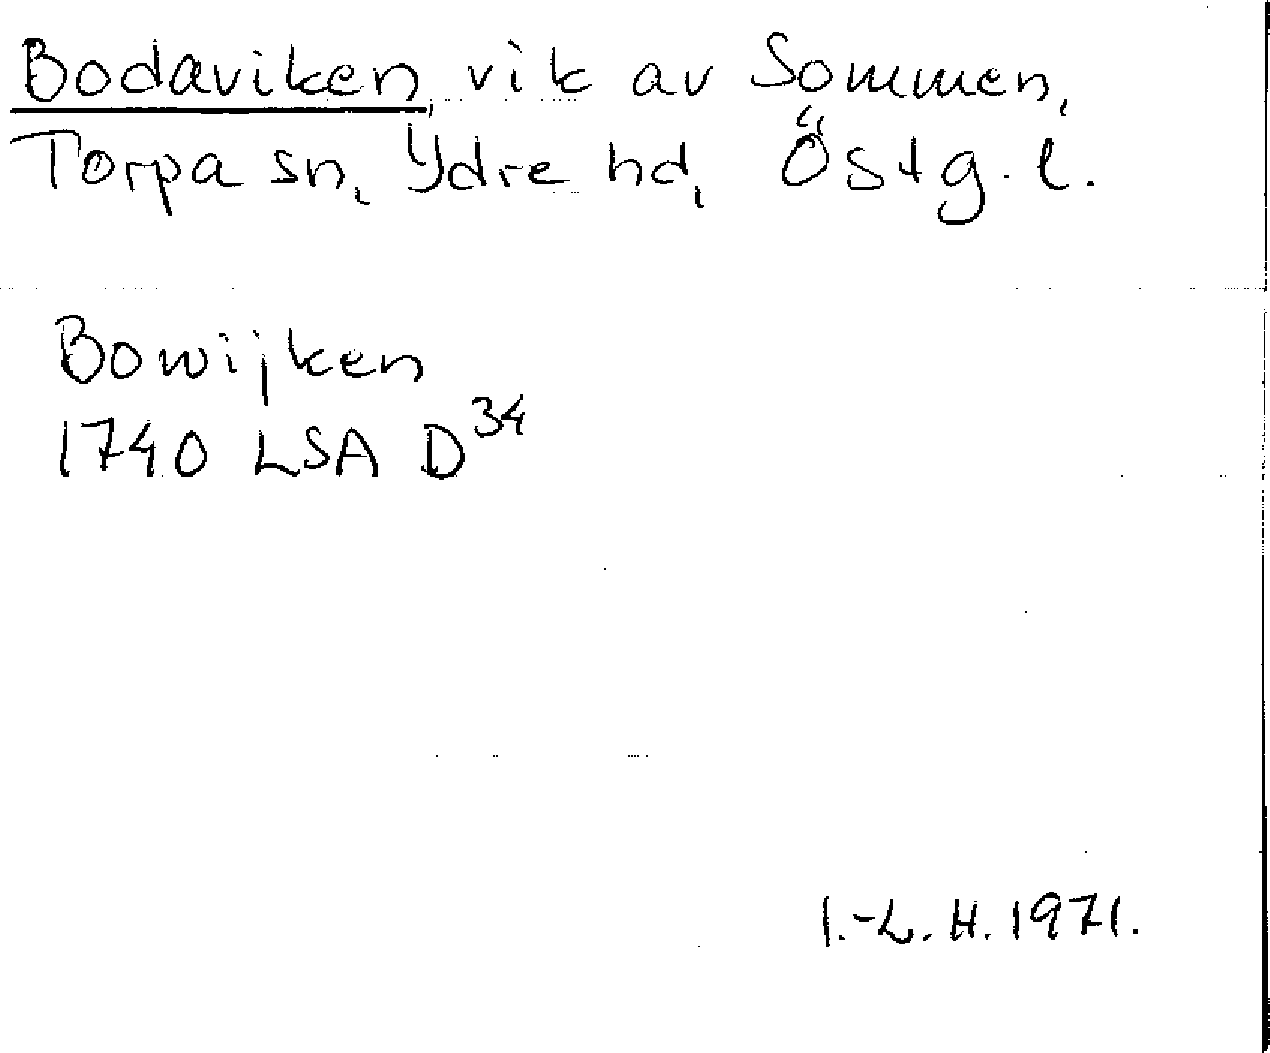 Bodaviken, vik av Sommen,
Torpa sn, Ydre hd, Östg. l.
Bowijken
1740 LSA D³⁴
I.-L. H. 1971.